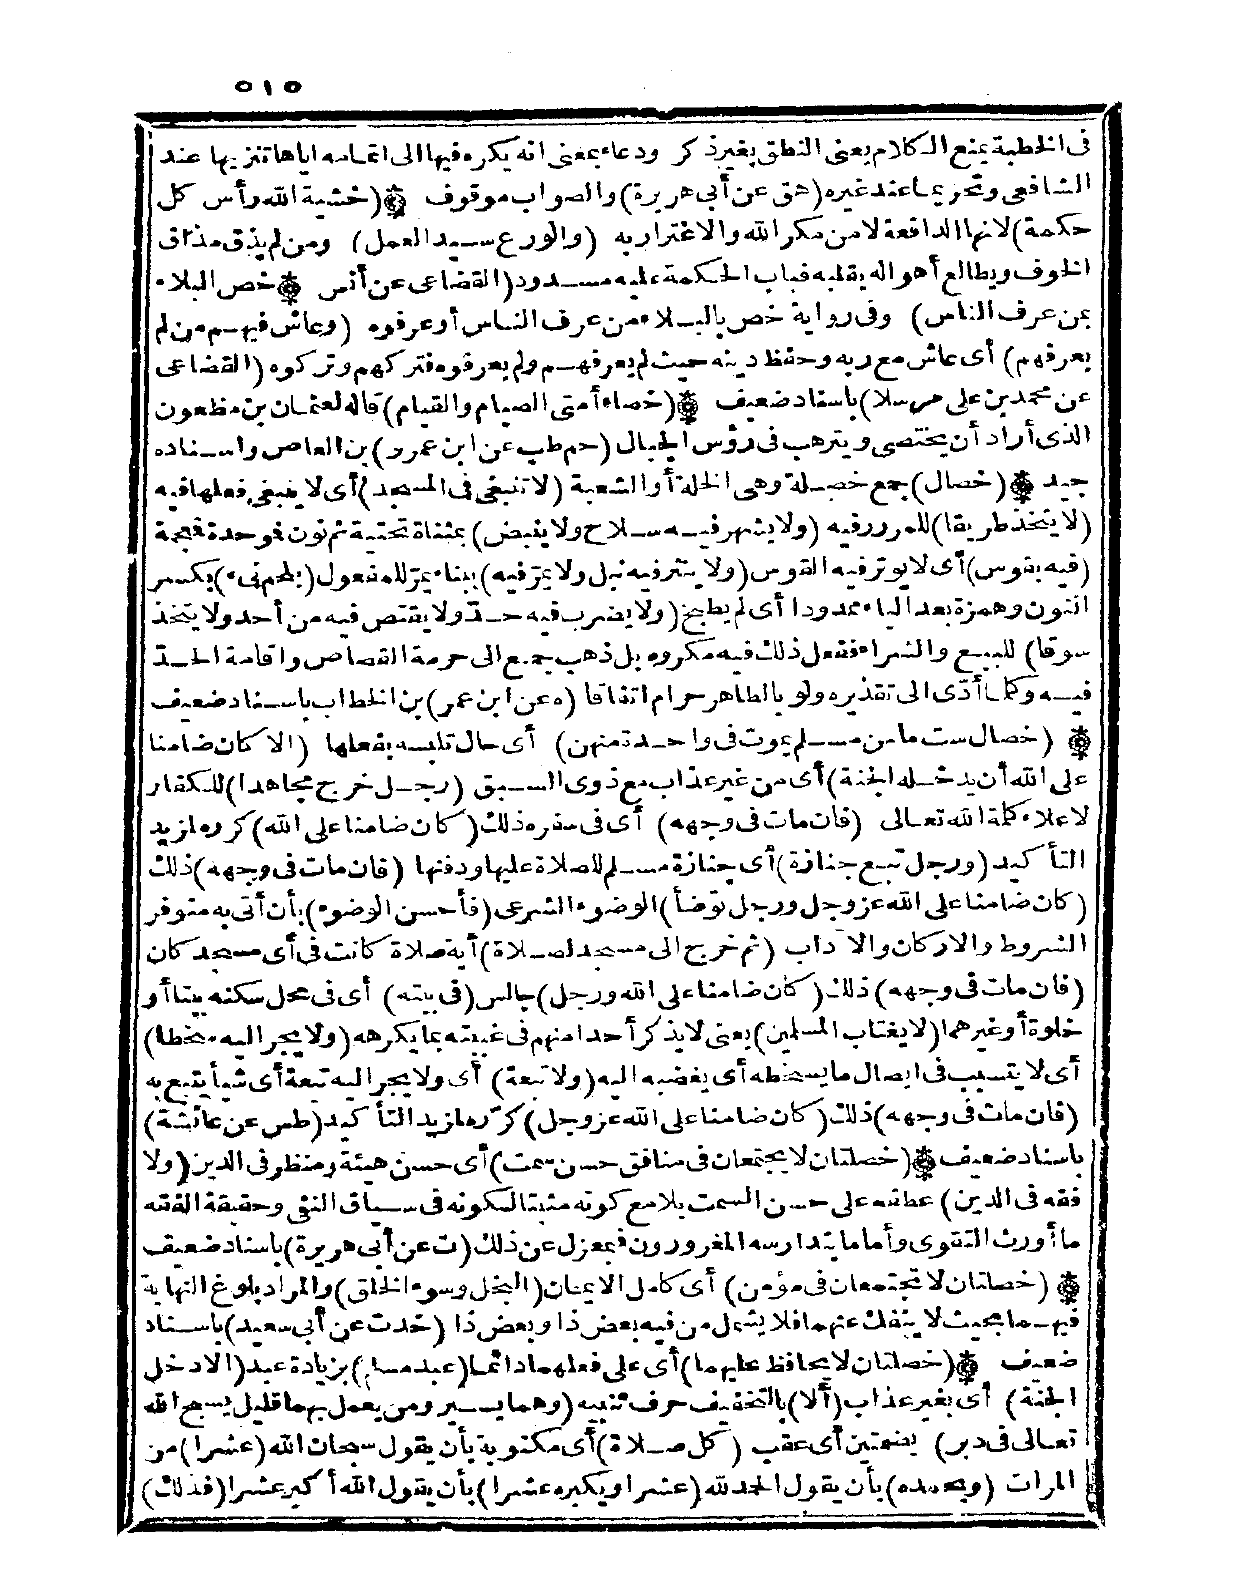 ٥١٥
فى الخطبة يمنع الكلام يعنى النطق بغير ذكر ودعاء بمعنى انه يكره فيها الى اتمامه اياها تنزيها عند
الشافعى وتحريما عند غيره (هق عن أبى هريرة) والصواب موقوف ۞ (خشية الله رأس كل
حكمة) لانها الدافعة لامن مكر الله والاغترار به (والورع سيد العمل) ومن لم يذق مذاق
الخوف ويطالع أهواله بقلبه فباب الحكمة عليه مسدود (القضاعى عن أنس ۞ خص البلاء
بمن عرف الناس) وفى رواية خص بالبلاء من عرف الناس أو عرفوه (وعاش فيهم من لم
يعرفهم) أى عاش مع ربه وحفظ دينه حيث لم يعرفهم ولم يعرفوه فتركهم وتركوه (القضاعى
عن محمد بن على مرسلا) باسناد ضعيف ۞ (خصاء أمتى الصيام والقيام) قاله لعثمان بن مظعون
الذى أراد أن يختصى ويترهب فى رؤس الجبال (حم طب عن ابن عمرو) بن العاص واسناده
جيد ۞ (خصال) جمع خصلة وهى الخلة أو الشعبة (لا تنبغى فى المسجد) أى لا ينبغى فعلها فيه
(لا يتخذ طريقا) للمرور فيه (ولا يشهر فيه سلاح ولا ينبض) بمثناة تحتية ثم نون فوحدة فعجمة
(فيه بقوس) أى لا يوتر فيه القوس (ولا ينثر فيه نبل ولا يمرّ فيه) ببناء يمرّ للمفعول (بلحم نىء) بكسر
النون وهمزة بعد الياء ممدودا أى لم يطبخ (ولا يضرب فيه حدّ ولا يقتص فيه من أحد ولا يتخذ
سوقا) للبيع والشراء ففعل ذلك فيه مكروه بل ذهب جمع الى حرمة القصاص واقامة الحدّ
فيه وكلما أدّى الى تقذيره ولو بالطاهر حرام اتفاقا (ه عن ابن عمر) بن الخطاب باسناد ضعيف
۞ (خصال ست ما من مسلم يموت فى واحدة منهن) أى حال تلبسه بفعلها (الا كان ضامنا
على الله أن يدخله الجنة) أى من غير عذاب مع ذوى السبق (رجل خرج مجاهدا) للكفار
لاعلاء كلمة الله تعالى (فان مات فى وجهه) أى فى سفره ذلك (كان ضامنا على الله) كرره لمزيد
التأكيد (ورجل تبع جنازة) أى جنازة مسلم للصلاة عليها ودفنها (فان مات فى وجهه) ذلك
(كان ضامنا على الله عز وجل ورجل توضأ) الوضوء الشرعى (فأحسن الوضوء) بأن أتى به متوفر
الشروط والاركان والآداب (ثم خرج الى مسجد لصلاة) أية صلاة كانت فى أى مسجد كان
(فان مات فى وجهه) ذلك (كان ضامنا على الله ورجل) جالس (فى بيته) أى فى محل سكنه بيتا أو
خلوة أو غيرهما (لا يغتاب المسلمين) يعنى لا يذكر أحدا منهم فى غيبته بما يكرهه (ولا يجر اليه سخطا)
أى لا يتسبب فى ايصال ما يسخطه أى يغضبه اليه (ولا تبعة) أى ولا يجر اليه تبعة أى شيأ يتبع به
(فان مات فى وجهه) ذلك (كان ضامنا على الله عز وجل) كرّره لمزيد التأكيد (طس عن عائشة)
باسناد ضعيف ۞ (خصلتان لا يجتمعان فى منافق حسن سمت) أى حسن هيئة ومنظر فى الدين (ولا
فقه فى الدين) عطفه على حسن السمت بلا مع كونه مثبتا لكونه فى سياق النفى وحقيقة الفقه
ما أورث التقوى وأما ما يتدارسه المغرورون فبمعزل عن ذلك (ت عن أبى هريرة) باسناد ضعيف
۞ (خصلتان لا تجتمعان فى مؤمن) أى كامل الايمان (البخل وسوء الخلق) والمراد بلوغ النهاية
فيهما بحيث لا ينفك عنهما فلا يشمل من فيه بعض ذا وبعض ذا (خدت عن أبى سعيد) باسناد
ضعيف ۞ (خصلتان لا يحافظ عليهما) أى على فعلهما دائما (عبد مسلم) بزيادة عبد (الا دخل
الجنة) أى بغير عذاب (ألا) بالتخفيف حرف تنبيه (وهما يسير ومن يعمل بهما قليل يسبح الله
تعالى فى دبر) بضمتين أى عقب (كل صلاة) أى مكتوبة بأن يقول سبحان الله (عشرا) من
المرات (ويحمده) بأن يقول الحمد لله (عشرا ويكبره عشرا) بأن يقول الله أكبر عشرا (فذلك)